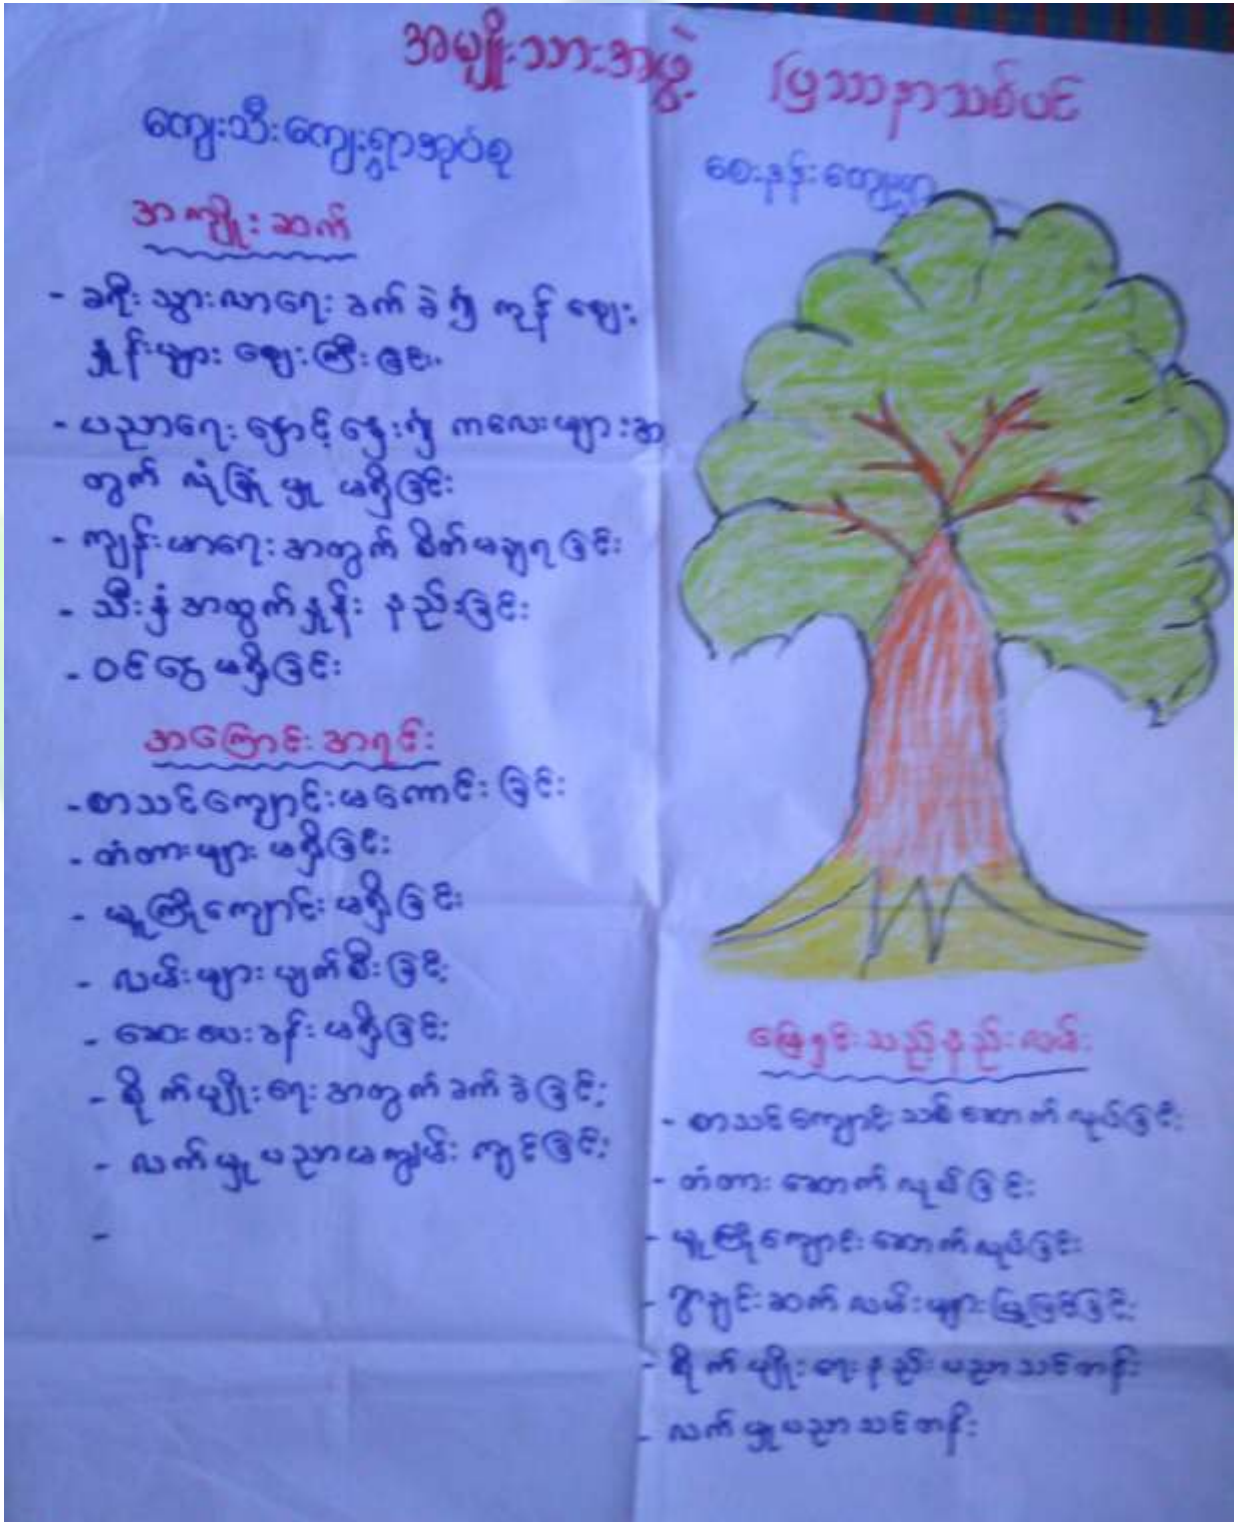 အမျိုးသားအဖွဲ့ ပြဿနာသစ်ပင်
ကျေးသီးကျေးရွာအုပ်စု
စေးနန်းကျေးရွာ
အကျိုးဆက်
- ခရီးသွားလာရေးခက်ခဲ၍ ကုန်ဈေး
နှုန်းများ ဈေးကြီးခြင်း
- ပညာရေးနှောင့်နှေး၍ ကလေးများအ
တွက် လုံခြုံမှု မရှိခြင်း
- ကျန်းမာရေးအတွက် စိတ်မချရခြင်း
- သီးနှံအထွက်နှုန်း နည်းခြင်း
- ဝင်ငွေမရှိခြင်း
အကြောင်းအရင်း
- စာသင်ကျောင်းမကောင်းခြင်း
- တံတားများ မရှိခြင်း
- မူကြိုကျောင်းမရှိခြင်း
- လမ်းများပျက်စီးခြင်း
- ဆေးပေးခန်းမရှိခြင်း
- စိုက်ပျိုးရေးအတွက်ခက်ခဲခြင်း
- လက်မှုပညာမကျွမ်းကျင်ခြင်း
-
ဖြေရှင်းသည့်နည်းလမ်း
- စာသင်ကျောင်းသစ်ဆောက်လုပ်ခြင်း
- တံတားဆောက်လုပ်ခြင်း
- မူကြိုကျောင်းဆောက်လုပ်ခြင်း
- ရွာချင်းဆက်လမ်းများပြုပြင်ခြင်း
- စိုက်ပျိုးရေးနည်းပညာသင်တန်း
- လက်မှုပညာသင်တန်း